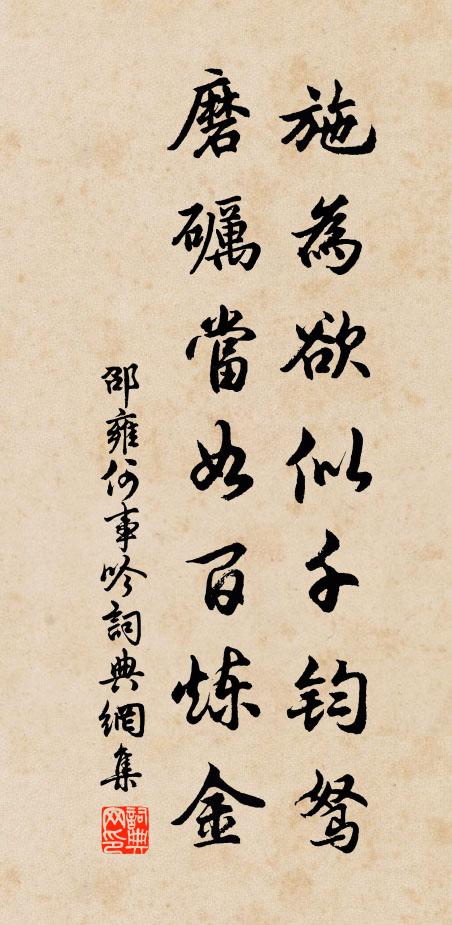 施為欲似千鈞駑
磨礪當如百煉金
邵雍何事吟詞典網集
詞典网印